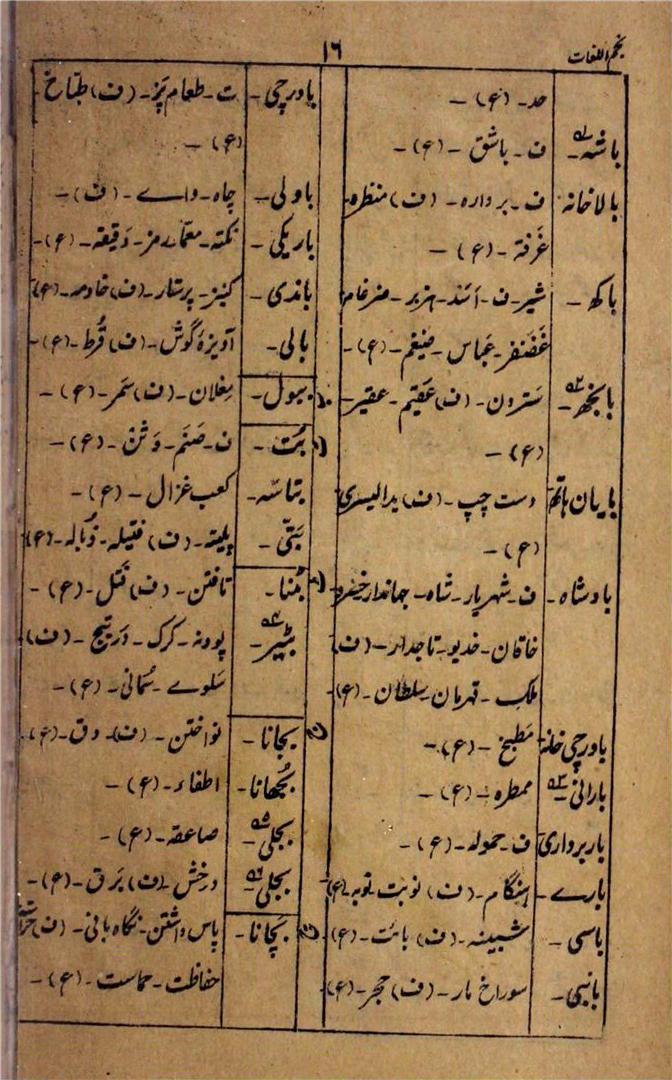 نجم اللغات
۱۶
حد - (ع) -
باشہ ۵۱ - ف - باشق - (ع) -
بالاخانہ ف - بروارہ - (ف) منظرہ
غُرفة - (ع) -
باکھ - شیر - ف - اَسَد - ہزبر - ضرغام
غَضَنفر - عَباس - ضیغم - (ع) -
بانجھ ۵۲ - سَترون - (ف) عَقیم - عقیر -
(ع) -
بایاں ہاتھ دست چپ - (ف) یدالیسری
(ع) -
بادشاہ - ف - شہریار - شاہ - جہاندار خسرو
خاقان - خدیو - تاجدار - (ف)
ملک - قہرمان - سلطان - (ع) -
باورچی خانہ مَطبخ - (ع) -
بارانی ۵۳ - ممطرہ - (ع) -
باربرداری ف - حمولہ - (ع) -
بارے - ہنگام - (ف) نوبت توبہ (ع)
باسی - شبینہ - (ف) بائت - (ع)
بانبی - سوراخ مار - (ف) حجر - (ع)
باورچی - ت - طعام پَز - (ف) طبّاخ -
(ع) -
باولی - چاہ - واے - (ف) -
باریکی - نکتہ - معمّا - رمز - دَقیقہ - (ع) -
باندی - کنیز - پرستار - (ف) خادمہ - (ع)
بالی - آویزۂ گوش - (ف) قُرط - (ع) -
ببول - مغلان - (ف) سَمر - (ع) -
بُت - ف - صَنَم - وَثَن - (ع) -
بتاسہ - کعب غزال - (ع) -
بَتّی - پلیتہ - (ف) فتیلہ - ذُبالہ - (ع)
بُننا - تافتن - (ف) فَتل - (ع) -
بٹیر ۵۴ - پودنہ - کرک - - (ف)
سَلوے - سُمانی - (ع) -
بجانا - نواختن - (ف) دق - (ع) -
بُجھانا - اطفاء - (ع) -
بجلی ۵۵ - صاعقہ - (ع) -
بجلی ۵۶ - درخش - (ف) بَرق - (ع) -
بچانا - پاس داشتن - نگاہ بانی - (ف)
حفاظت - حماست - (ع) -